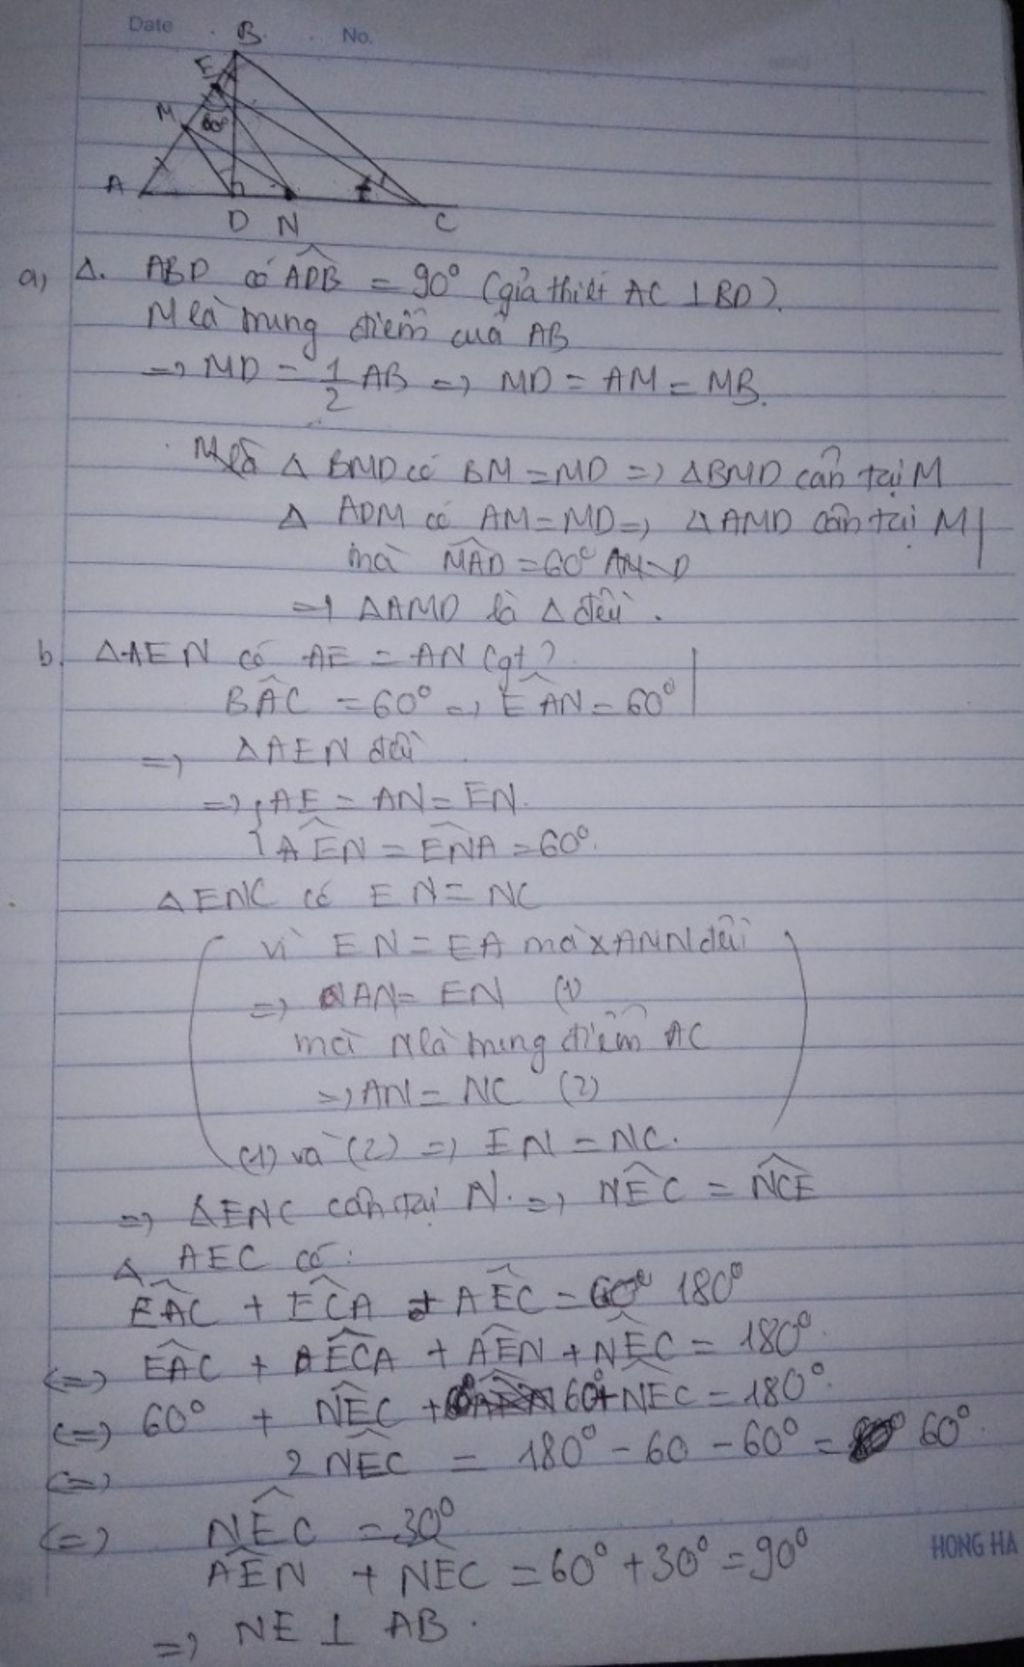 Date
No.
B
E
M
60°
A
D
N
C
a, Δ. ABD có ADB̂ = 90° (giả thiết AC ⊥ BD).
M là trung điểm của AB
=> MD = 1/2 AB => MD = AM = MB.
Δ BMD có BM = MD => ΔBMD cân tại M
Δ ADM có AM = MD => ΔAMD cân tại M
mà MÂD = 60°
=> ΔAMD là Δ đều.
b. ΔAEN có AE = AN (gt).
BÂC = 60° => EÂN = 60°
=> ΔAEN đều
=> { AE = AN = EN.
AÊN = EN̂A = 60°.
ΔENC có EN = NC
vì EN = EA mà đều
=> AN = EN (1)
mà N là trung điểm AC
=> AN = NC (2)
(1) và (2) => EN = NC.
=> ΔENC cân tại N. => NÊC = NĈE
Δ AEC có:
EÂC + EĈA + AÊC = 180°
<=> EÂC + EĈA + AÊN + NÊC = 180°.
<=> 60° + NÊC + 60° + NÊC = 180°.
<=> 2 NÊC = 180° - 60 - 60° = 60°.
<=> NÊC = 30°
AÊN + NEC = 60° + 30° = 90°
=> NE ⊥ AB.
HONG HA